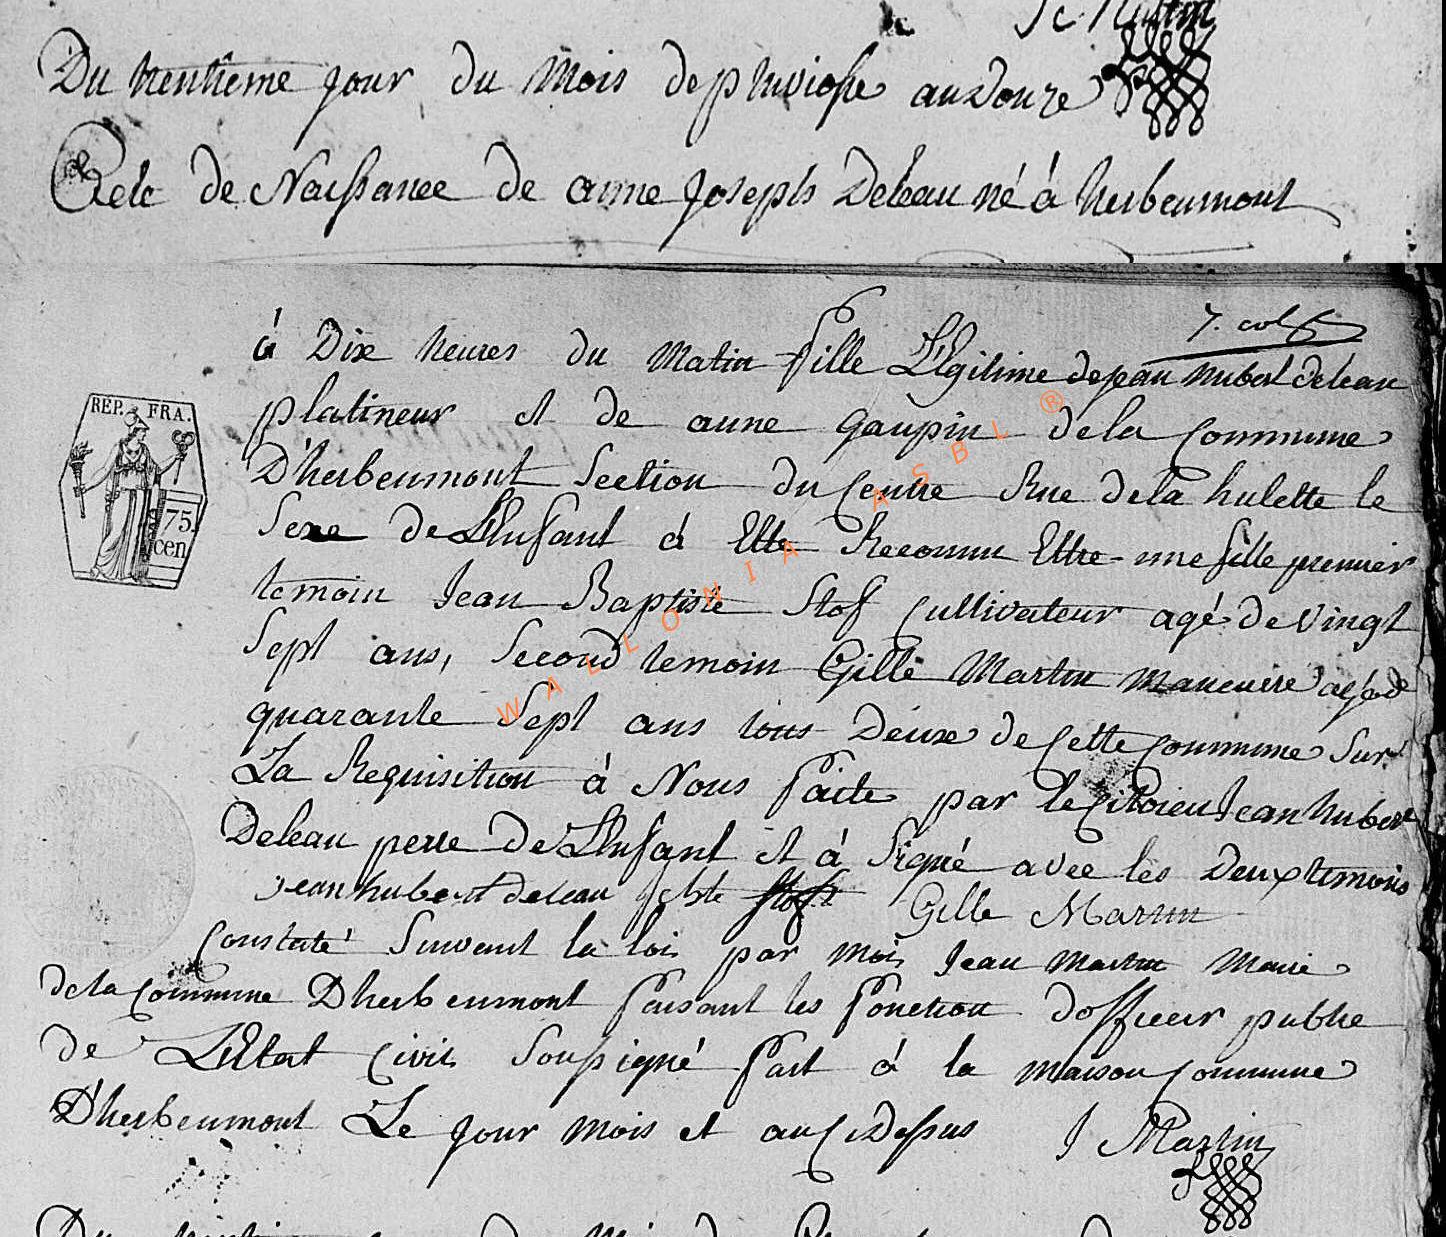 Du trentieme jour du Mois de pluviose an Douze
Acte de Naissance de anne Joseph Deleau né à herbeumont
7. vol
à Dix heures du Matin fille Légitime de jean hubert deleau
platineur et de anne gaupin de la Commune
D'herbeumont Section du Centre Rue de la hulette le
Sexe de L'Enfant à Ette Reconnu Ettre une fille premier
temoin Jean Baptiste Stof Cultivateur agé de vingt
Sept ans, Second temoin Gille Martin maneuvre agé de
quarante Sept ans tous Deux de Cette Commune Sur
La Requisition à Nous faite par le Citoien Jean hubert
Deleau perre de L'Enfant et à Signé avec les Deux temoins
jean hubert deleau Stof Gille Martin
Constaté Suivant la loi par moi Jean Martin Maire
de la Commune D'herbeumont faisant les fonction d'officier publie
de L'Etat Civil Soussigné fait à la maison Commune
D'herbeumont Le jour mois et an Ci Dessus J Martin
REP. FRA.
75
cen
WALLONIA ASBL ®